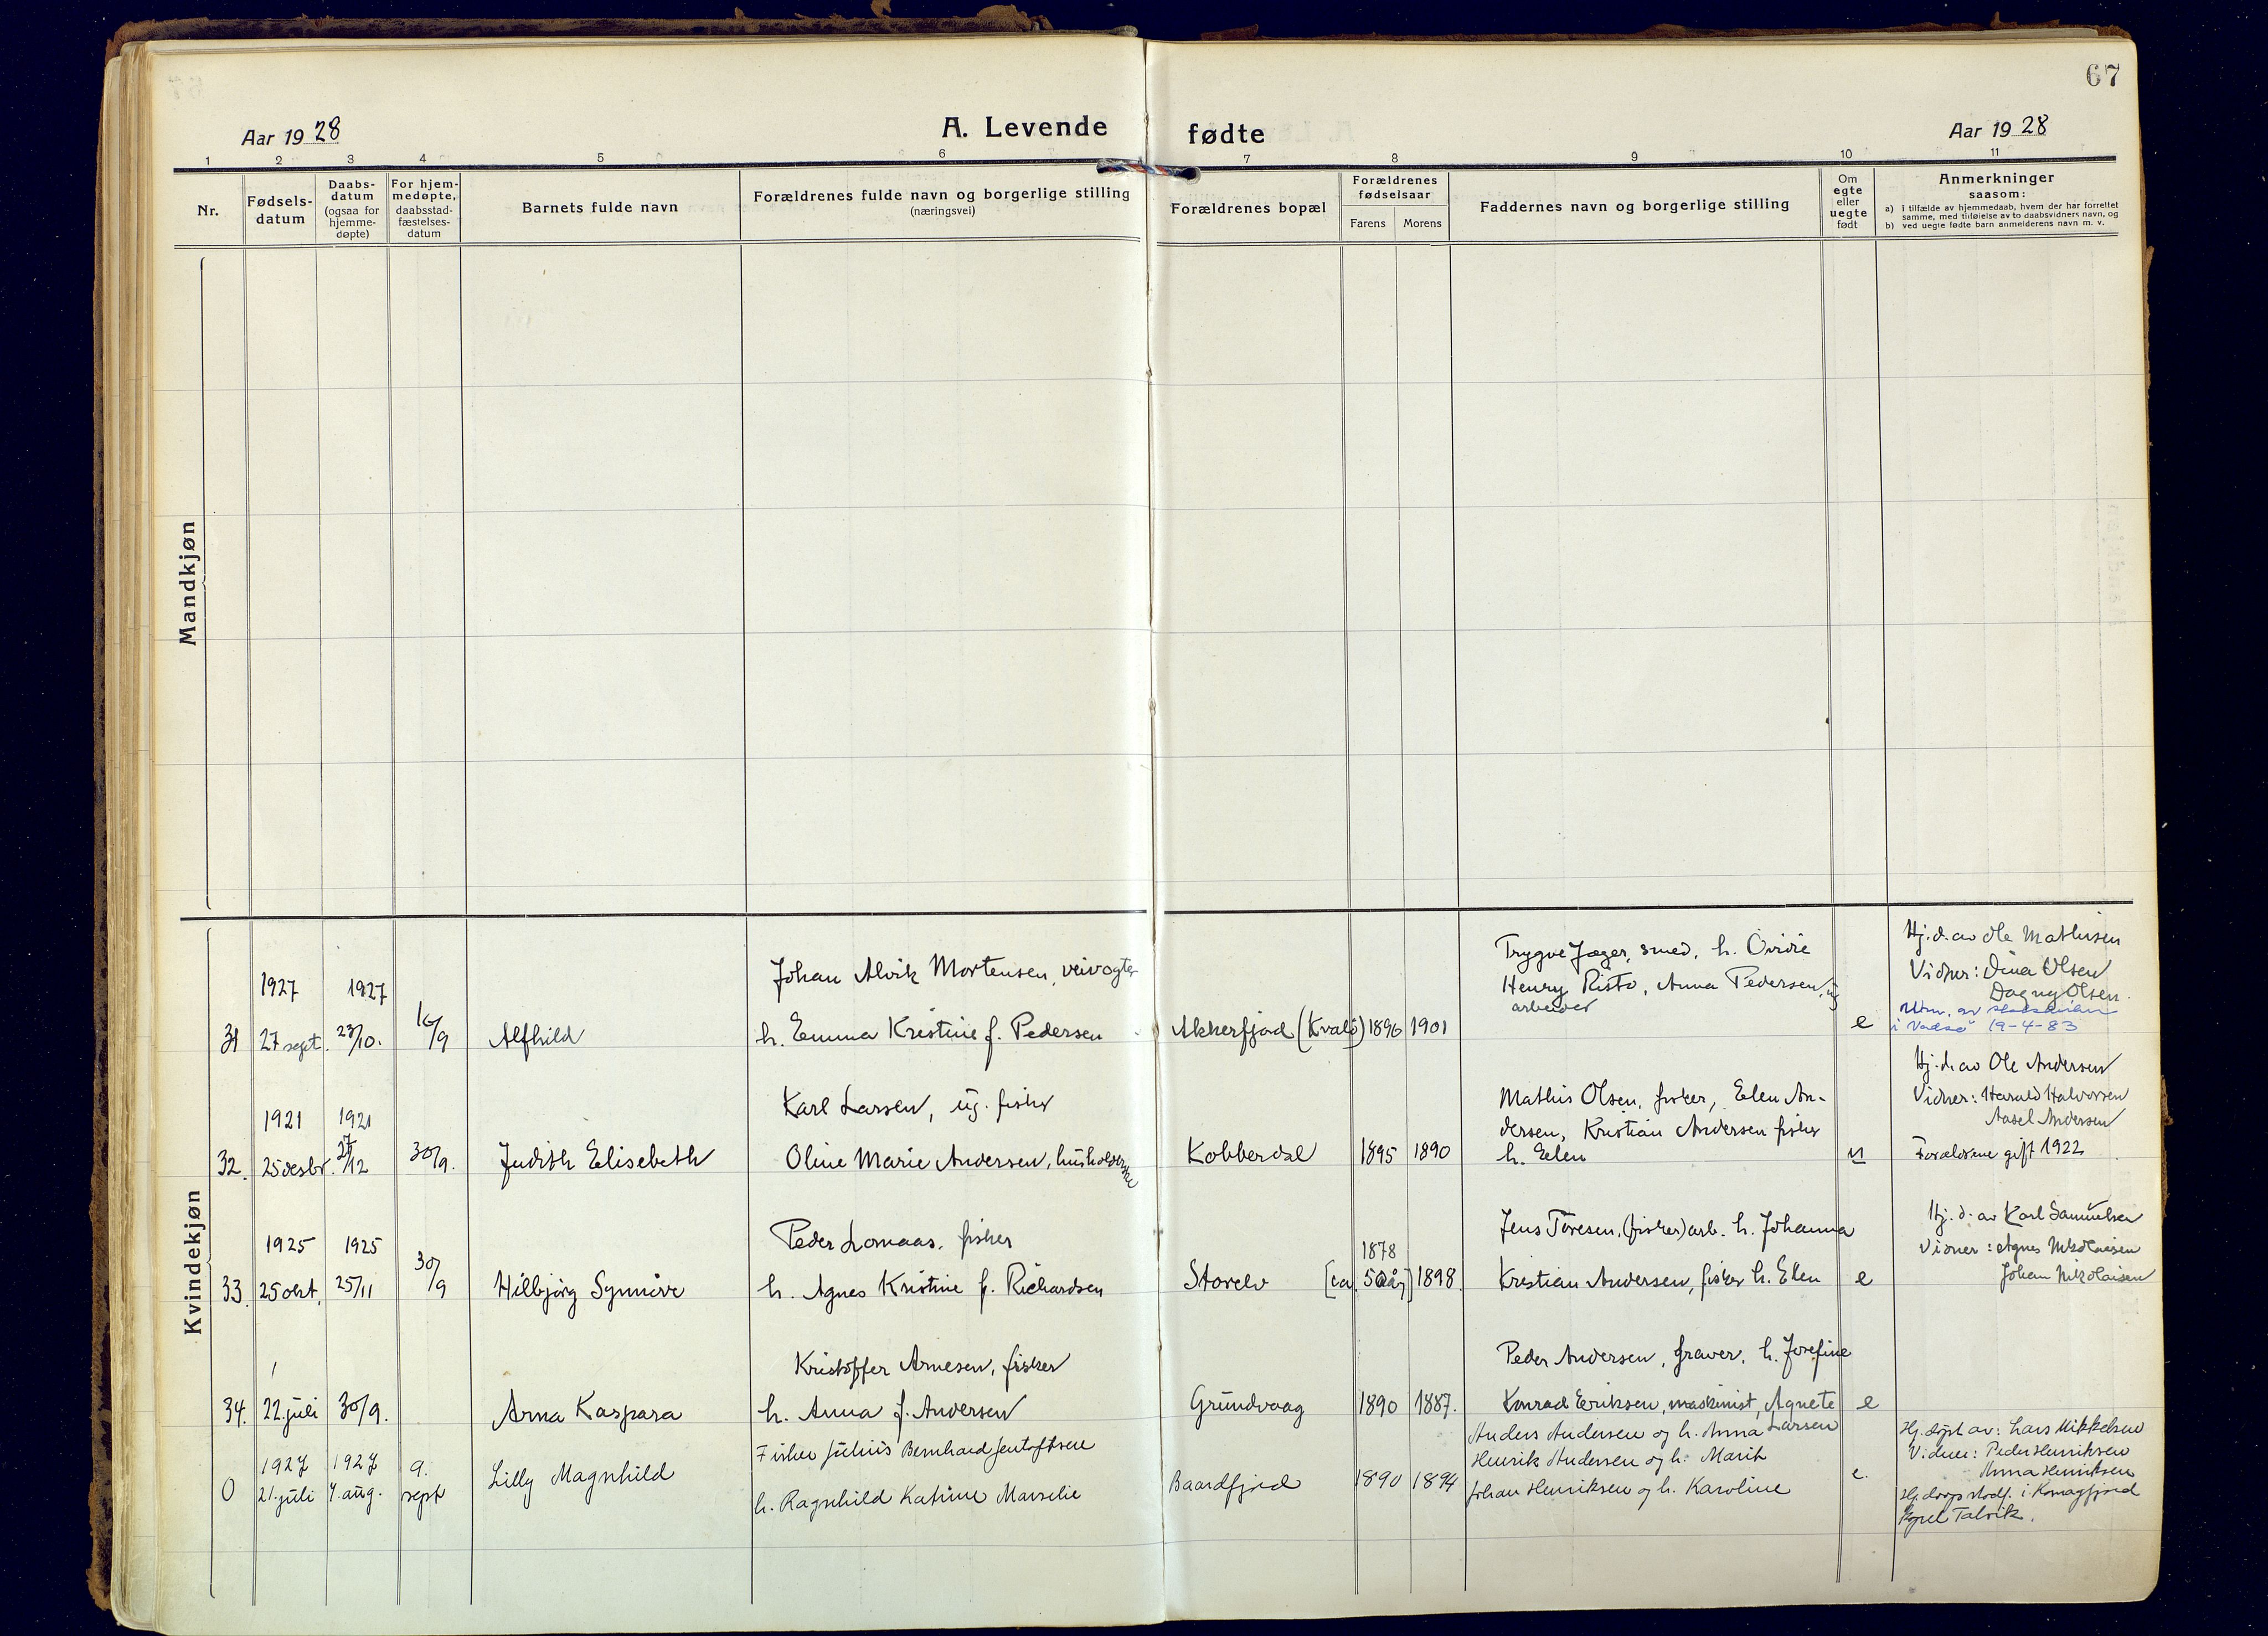 67
Aar 1928
A. Levende fødte
Aar 1928
1 2 3 4 5 6 7 8 9 10 11
Nr.
Fødsels-
datum
Daabs-
datum
(ogsaa for
hjemme-
døpte)
For hjem-
medøpte,
daabsstad-
fæstelses-
datum
Barnets fulde navn
Forældrenes fulde navn og borgerlige stilling
(næringsvei)
Forældrenes bopæl
Forældrenes
fødselsaar
Farens Morens
Faddernes navn og borgerlige stilling
Om
egte
eller
uegte
født
Anmerkninger
saasom:
a) i tilfælde av hjemmedaab, hvem der har forrettet
samme, med tilføielse av to daabsvidners navn, og
b) ved uegte fødte barn anmelderens navn m. v.
Mandkjøn
Kvindekjøn
31
1927
27 sept.
1927
23/10.
16/9
Alfhild
Johan Alvik Mortensen, veivogter
h. Emma Kristine f. Pedersen
Akkerfjord (Kvalö)
1896
1901
Trygve Jæger, smed, h. Ovidie
Henry Risto, Anna Pedersen, ug
arbeider
e
Hj. d. av Ole Mathisen
Vidner: Dina Olsen
Dagny Olsen.
i Vadsø 19-4-83
32.
1921
25 desbr.
1921
27/12
30/9.
Judith Elisebeth
Karl Larsen, ug. fisker
Oline Marie Andersen, husholderske
Kobberdal
1895
1890
Mathis Olsen, fisker, Elen An-
dersen, Kristian Andersen fisker
h. Elen
u
Hj. d. av Ole Andersen
Vidner: Harald Halvorsen
Aasel Andersen
Forældrene gift 1922
33.
1925
25 okt.
1925
25/11
30/9
Hilbjörg Synnöve
Peder Lomaas, fisker
h. Agnes Kristine f. Richardsen
Storelv
1878
[ca. 50 år]
1898.
Jens Toresen, (fisker) arb. h. Johanna
Kristian Andersen, fisker h. Elen
e
Hj. d. av Karl Samuelsen
Vidner: Agnes Nikolaisen
Johan Nikolaisen
34.
22. juli
30/9.
Arna Kaspara
Kristoffer Arnesen, fisker
h. Anna f. Andersen
Grundvaag
1890
1887.
Peder Andersen, graver, h. Josefine
Konrad Eriksen, maskinist, Agnete
Larsen
e
0
1927
21. juli
1927
7. aug.
9.
sept
Lilly Magnhild
Fisker Julius Bernhard Jentoftsen
h. Ragnhild Katrine Marselie
Baardfjord
1890
1894
Anders Andersen og h. Anna
Henrik Andersen og h. Marit
Johan Henriksen og h. Karoline
e.
Hj. døpt av: Lars Mikkelsen
Vidner: Peder Henriksen
Anna Henriksen
Hj. daap stadf. i Komagfjord
Kapel Talvik.